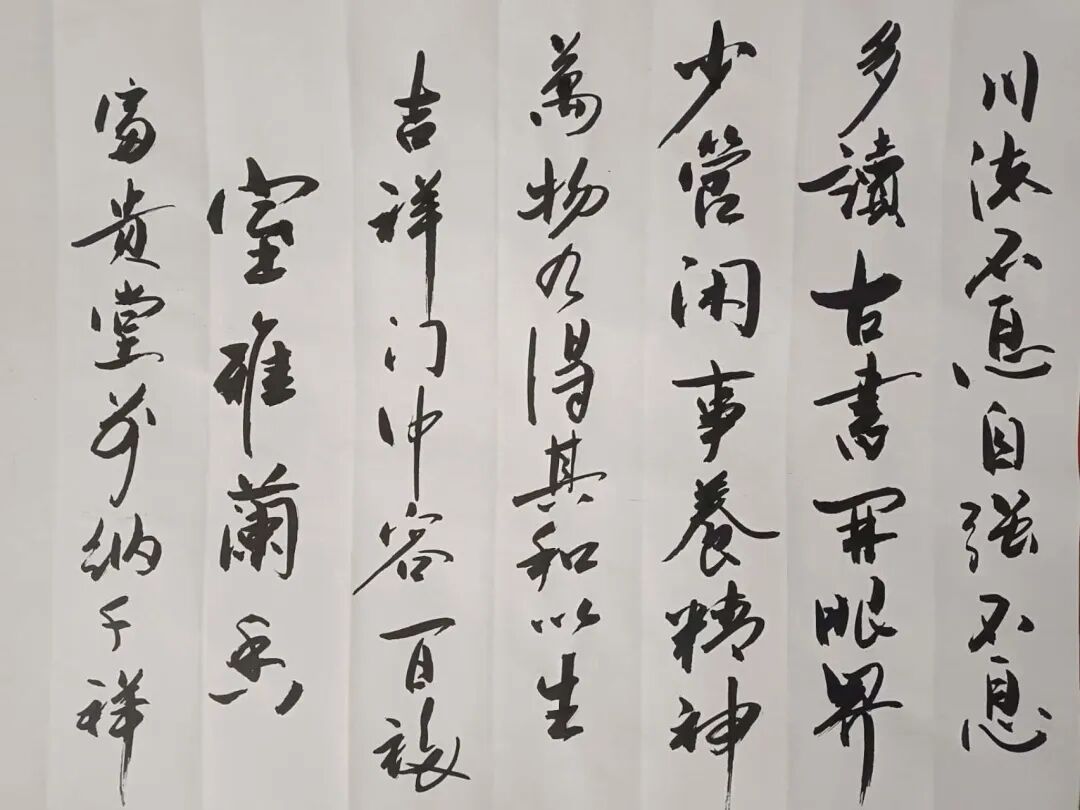 川流不息自强不息
多讀古書開眼界
少管闲事養精神
萬物各得其和以生
吉祥门中容百福
室雅蘭香
富贵堂前纳千祥